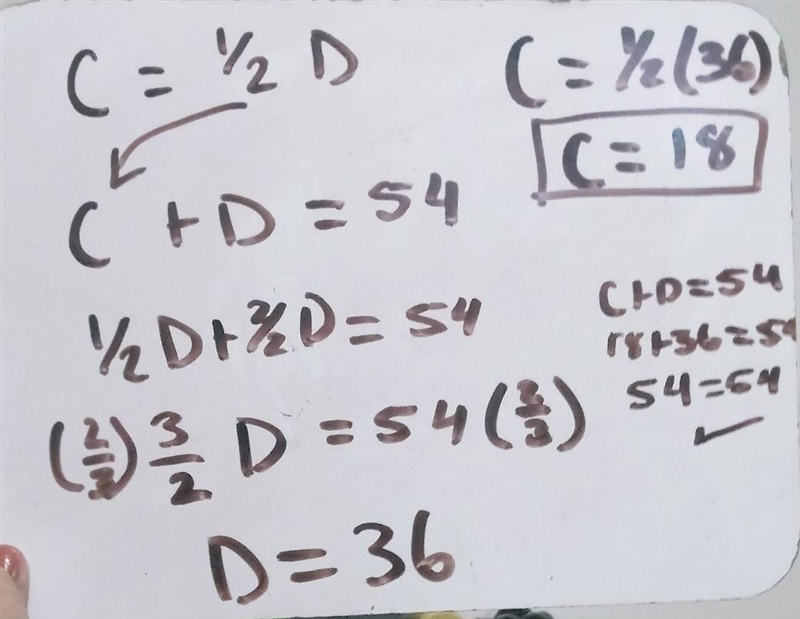 C = 1/2 D
C + D = 54
1/2 D + 2/2 D = 54
(2/3) 3/2 D = 54 (2/3)
D = 36
C = 1/2 (36)
C = 18
C+D=54
18+36=54
54=54
✓